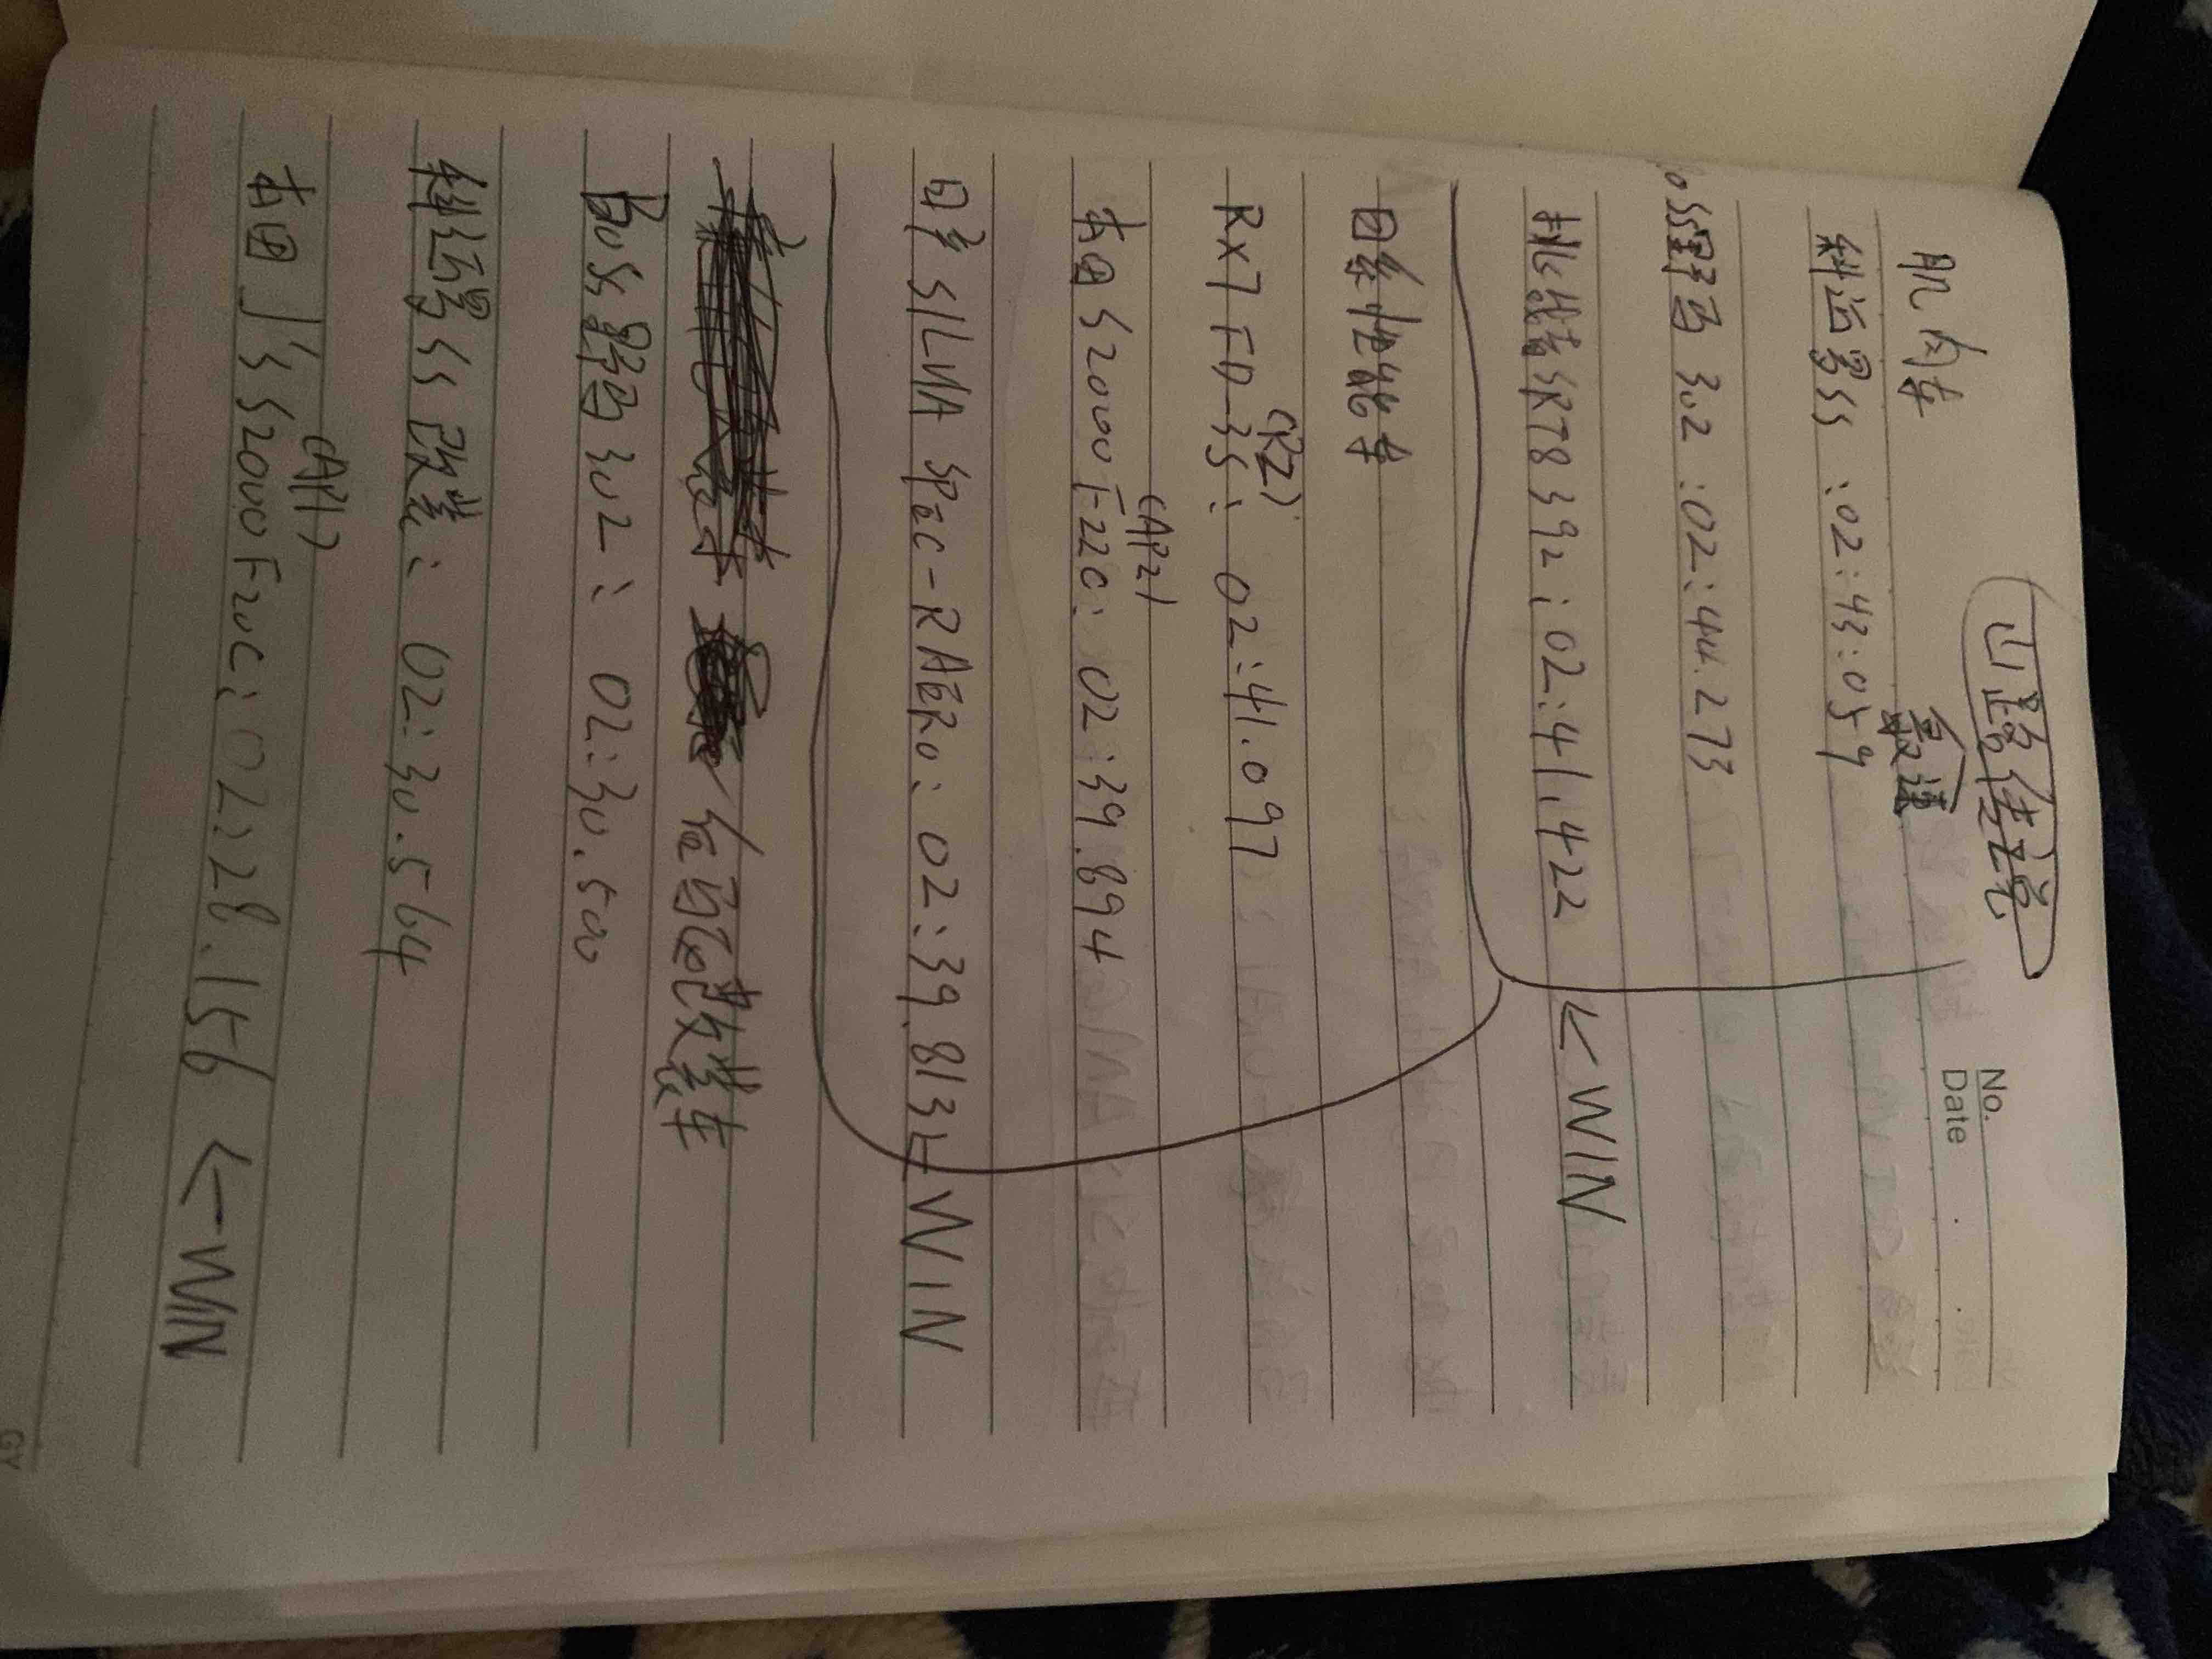 No.
Date
山路传说
最速
肌肉车
科迈罗SS:02:43:059
Boss野马302:02:44.273
挑战者SRT8392:02:41.422 ←WIN
日系性能车
(RZ)
RX7 FD3S:02:41.097
(AP2)
本田S2000 F22C:02:39.894
日产SILVIA SPEC-R AERO:02:39.813 ←WIN
佰百改装车
Boss野马302:02:30.500
科迈罗SS改装:02:30.564
(AP1)
本田J'S S2000 F20C:02:28.156 ←WIN